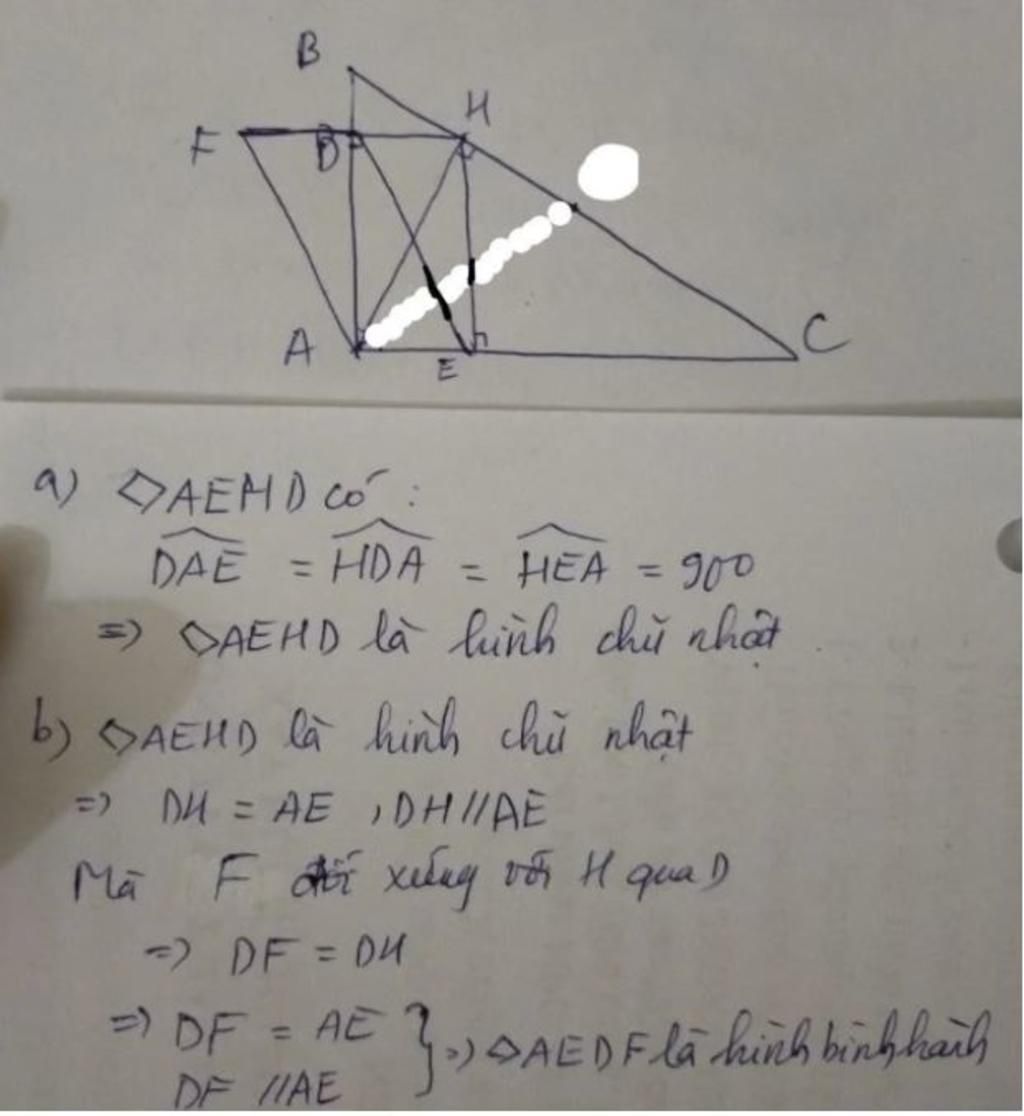 B
H
F
D
A
E
C
a) ◇AEHD có :
DAE = HDA = HEA = 900
=> ◇AEHD là hình chữ nhật.
b) ◇AEHD là hình chữ nhật
=> DH = AE , DH // AE
Mà F đối xứng với H qua D
=> DF = DH
=> DF = AE } => ◇AEDF là hình bình hành
DF // AE